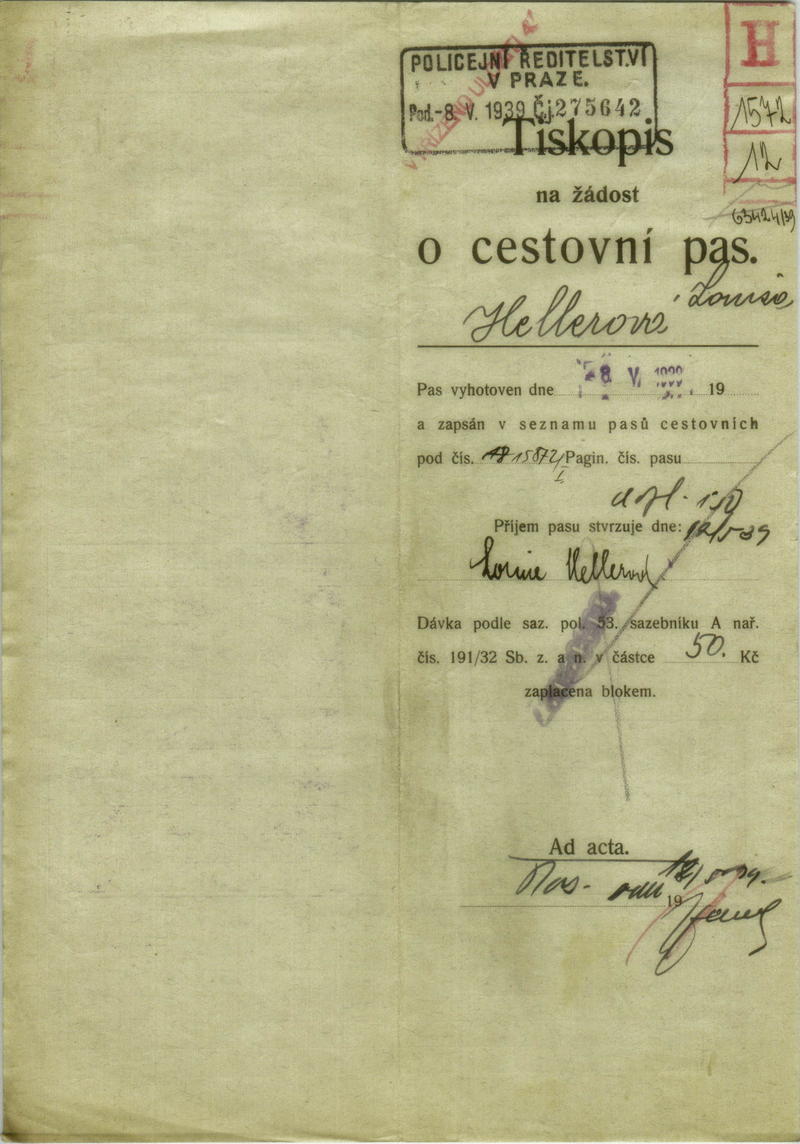 POLICEJNÍ ŘEDITELSTVÍ
V PRAZE.
Pod. -8. V. 1939 Čj. 275642
H
1572
12
63424/39
Tiskopis
na žádost
o cestovní pas.
Hellerová Louisa
Pas vyhotoven dne -8 V. 19
a zapsán v seznamu pasů cestovních
pod čís. 15872/I Pagin. čís. pasu
Příjem pasu stvrzuje dne: 12/V 39
Louise Hellerová
Dávka podle saz. pol. 53. sazebníku A nař.
čís. 191/32 Sb. z. a n. v částce 50. Kč
zaplacena blokem.
Ad acta.
19